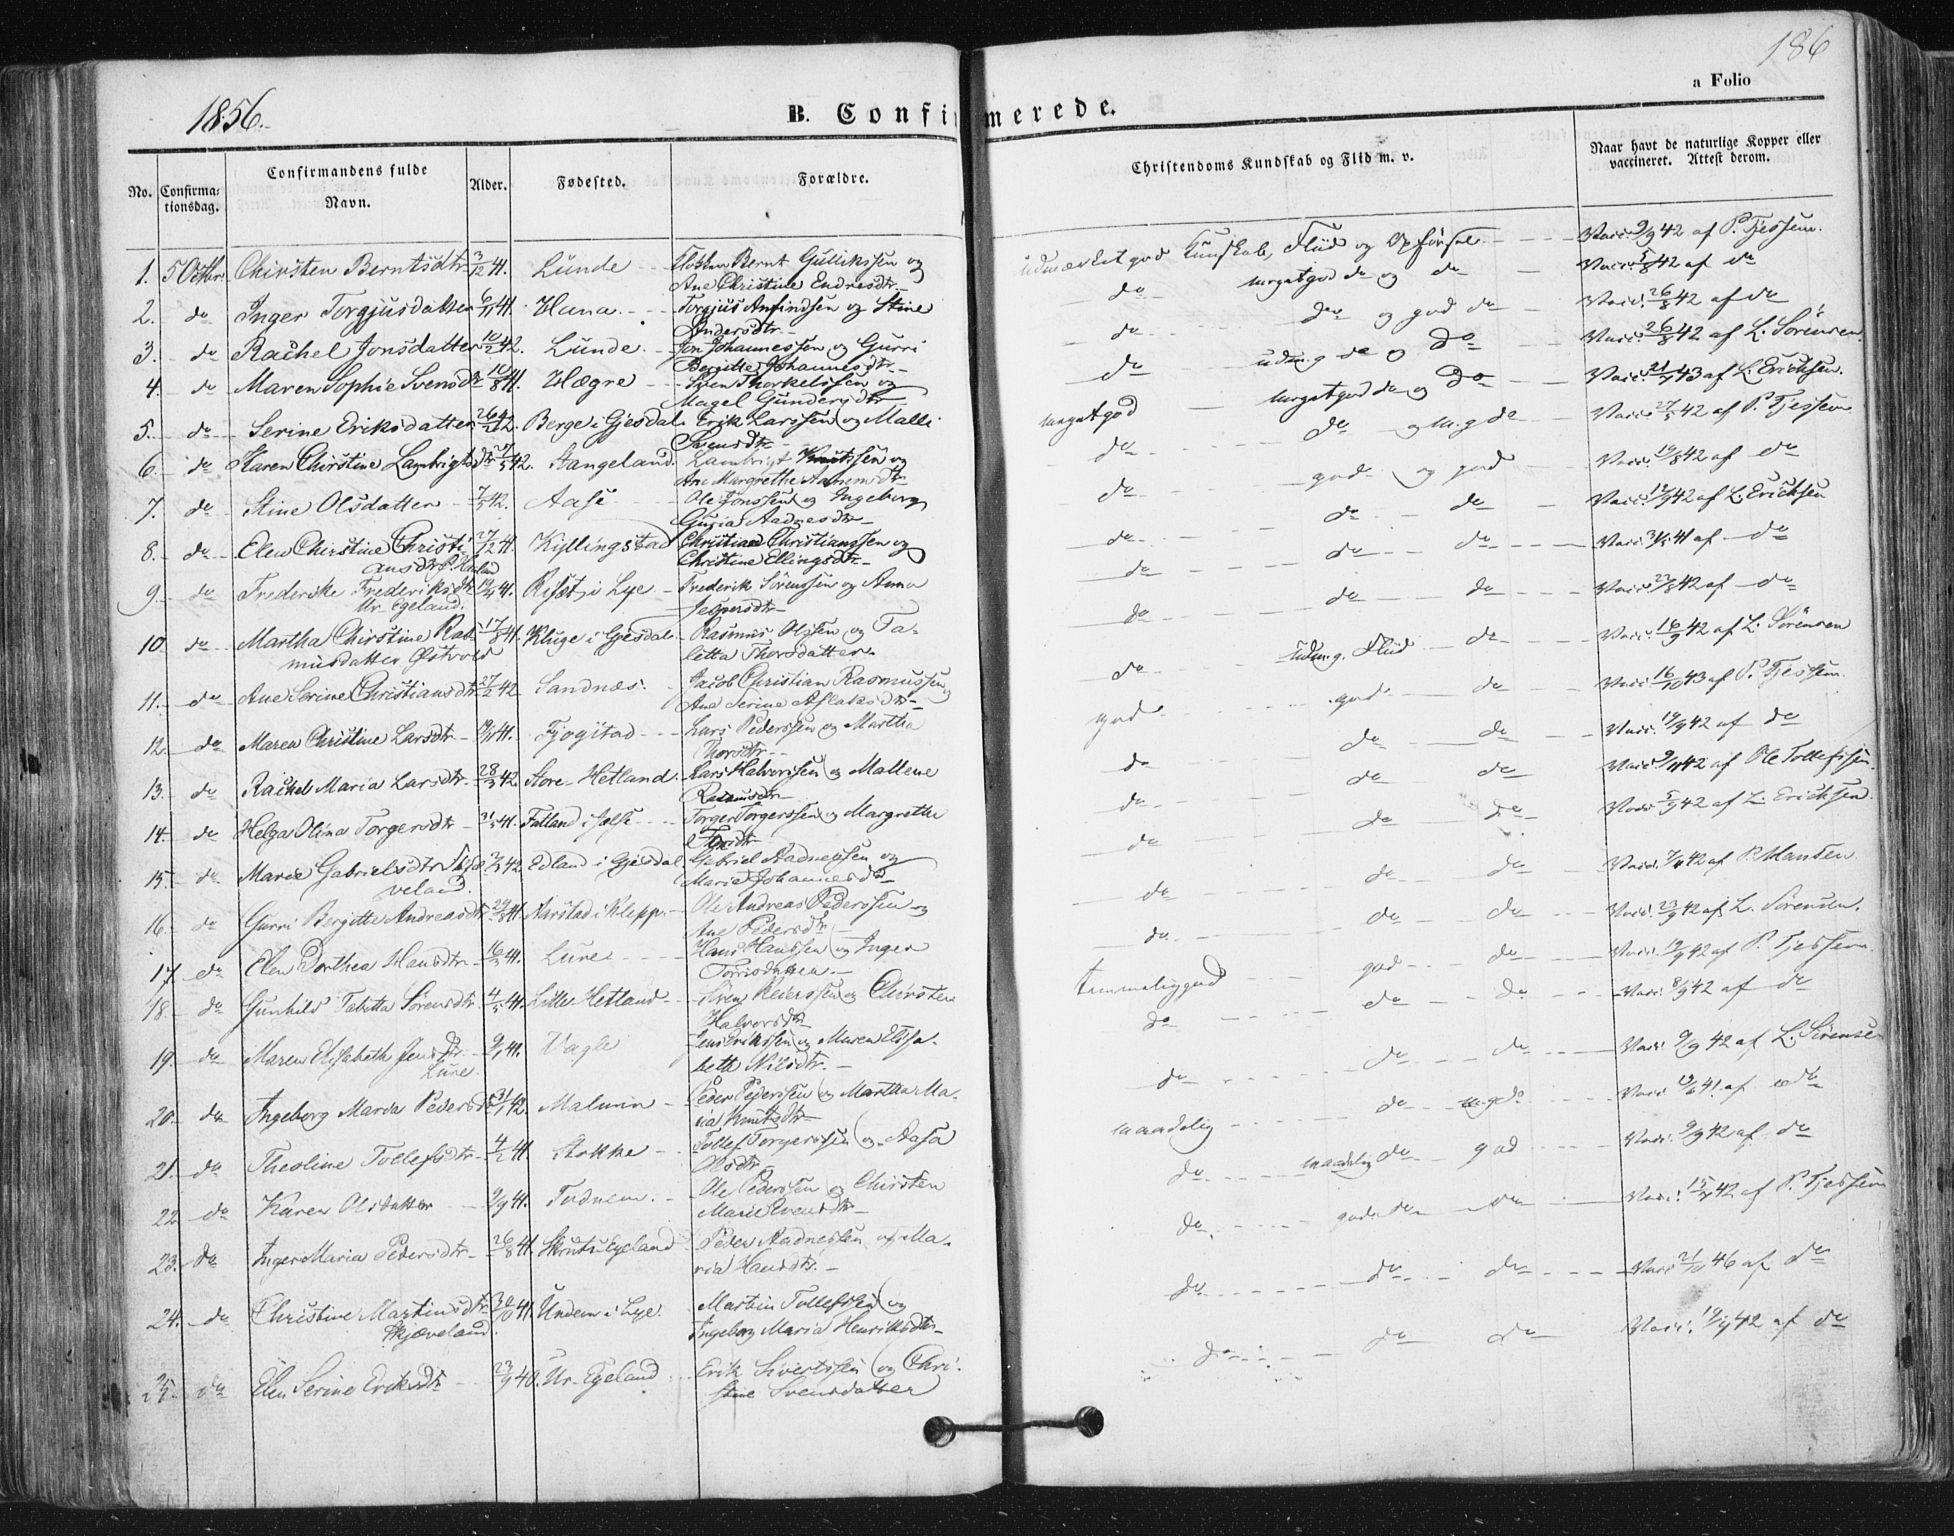 186
a Folio
1856.
B. Confirmerede.
No. Confirmationsdag. Confirmandens fulde Navn. Alder. Fødested. Forældre. Christendoms Kundskab og Flid m. v. Naar havt de naturlige Kopper eller vaccineret. Attest derom.
1. 5 Octbr. Chirsten Berntsdtr 3/12 41. Lunde Bernt Gulliksen og udmærket god Kundskab, Flid og Opførsel Vacc. 9/9 42 af P. Tjessem.
Ane Christine Endresdtr
2. do Inger Torgjusdatter 6/11 41. Hana Torgjus Anfindsen og Stine do meget god do og do Vacc. 5/8 42 af do
Andersdtr
3. do Rachel Jonsdatter 10/2 42. Lunde Jon Johannessen og Gurri do do og god do Vacc. 26/8 42 af do
Bergitte Johannesdtr
4. do Maren Sophie Svensdtr 10/8 41. Høgre Sven Thorkelssen og do udm. g. do og do Vacc. 26/8 42 af L. Sørensen
Magel Gundersdtr
5. do Serine Eriksdatter 26/2 42. Berge i Gjesdal Erik Larssen og Malli meget god meget god do og do Vacc. 21/7 43 af L. Erichsen.
Svensdtr
6. do Karen Chirstine Lambrigtsdtr 27/5 42. Stangeland. Lambrigt Knutssen og do do og m. g. do Vacc. 27/5 42 af P. Tjessem
Ane Margrethe
7. do Stine Olsdatter 7/5 42. Aase Ole Jonssen og Ingeborg do god og god Vacc. 19/8 42 af do
Guria Aadnesdtr
8. do Elen Chirstine Christi- 27/12 41. Kyllingstad Christian Christianssen og do do do Vacc. 12/9 42 af L. Erichsen
ansdtr Christine Ellingsdtr
9. do Frederike Frederiksdtr 41. i Lye Frederik Sørenssen og Anna do do do Vacc. 41 af do
Ur. Egeland. Jespersdtr
10. do Martha Chirstine Ras- 17/8 41. Kluge i Gjesdal Rasmus Olssen og Ta- do do do Vacc. 23/8 42 af do
musdatter Østvold letta Thorsdatter
11. do Ane Serine Christiansdtr 27/2 42. Sandnæs. Jacob Christian Rasmussen og do udm. g. Flid do Vacc. 16/9 42 af L. Sørensen
Ane Serine Aslaksdtr
12. do Maren Christine Larsdtr 41. Fjogstad Lars Pederssen og Martha god god do Vacc. 16/10 43 af P. Tjessem
Thorsdtr
13. do Rachel Maria Larsdtr 28/3 42. Store Hetland. Lars Halvorssen og Mallene do do do Vacc. 42 af do
Rasmusdtr
14. do Helga Olina Torgersdtr 41. Fatland i Torger Torgerssen og Margrethe do do do Vacc. 9/11 42 af Ole Tollefssen
15. do Marie Gabrielsdtr Skjæ- 42. Edland i Gjesdal Gabriel Aadnessen og do do do Vacc. 5/9 42 af L. Erichsen
veland. Marie Johannesdtr
16. do Gurri Bergitte Andreasdtr 41. Aarstad i Klepp. Ole Andreas Pederssen og do do do Vacc. 42 af P. Hansen
Ane Pedersdtr
17. do Elen Dorthea Hansdtr 41. Lure Hans Hanssen og Inger do do do Vacc. 23/9 42 af L. Sørensen.
Torrisdatter
18. do Gunhild Tabitta Sørensdtr 4/5 41. Lille Hetland Søren Reierssen og Chirsten temmelig god god do Vacc. 19/9 42 af P. Tjessem
Halvorsdtr
19. do Maren Elisabeth Jensdtr 41. Vagle Jens Erikssen og Maren Elisa- do do do Vacc. 8/9 42 af do
Lure beth Nilsdtr
20. do Ingeborg Marda Pedersdtr 31/1 42. Malmin Peder Pederssen og Martha Ma- do do do Vacc. 9/9 42 af L. Sørensen
ria Knutsdtr
21. do Theoline Tollefsdtr 4/2 41. Stokke Tollef Torgerssen og Aasa maadelig do m. g. do Vacc. 41 af do
Olsdtr
22. do Karen Olsdatter 9/9 41. Tudnem. Ole Pederssen og Chirsten do maadelig do god Vacc. 9/9 42 af do
Marie Evensdtr
23. do Inger Maria Pedersdtr 26/8 41. Skruts Egeland Peder Aadnessen og Ma- do god do do Vacc. 42 af P. Tjessem
ria Hansdtr
24. do Christine Martinsdtr 30/10 41. Undem i Lye Martin Tollefssen og do do do Vacc. 21/10 46 af do
Skjæveland. Ingeborg Maria Henriksdtr
25. do Elen Serine Eriksdtr 23/9 40. Ur. Egeland Erik Sivertssen og Chri- do do do Vacc. 42 af do
stine Svensdatter